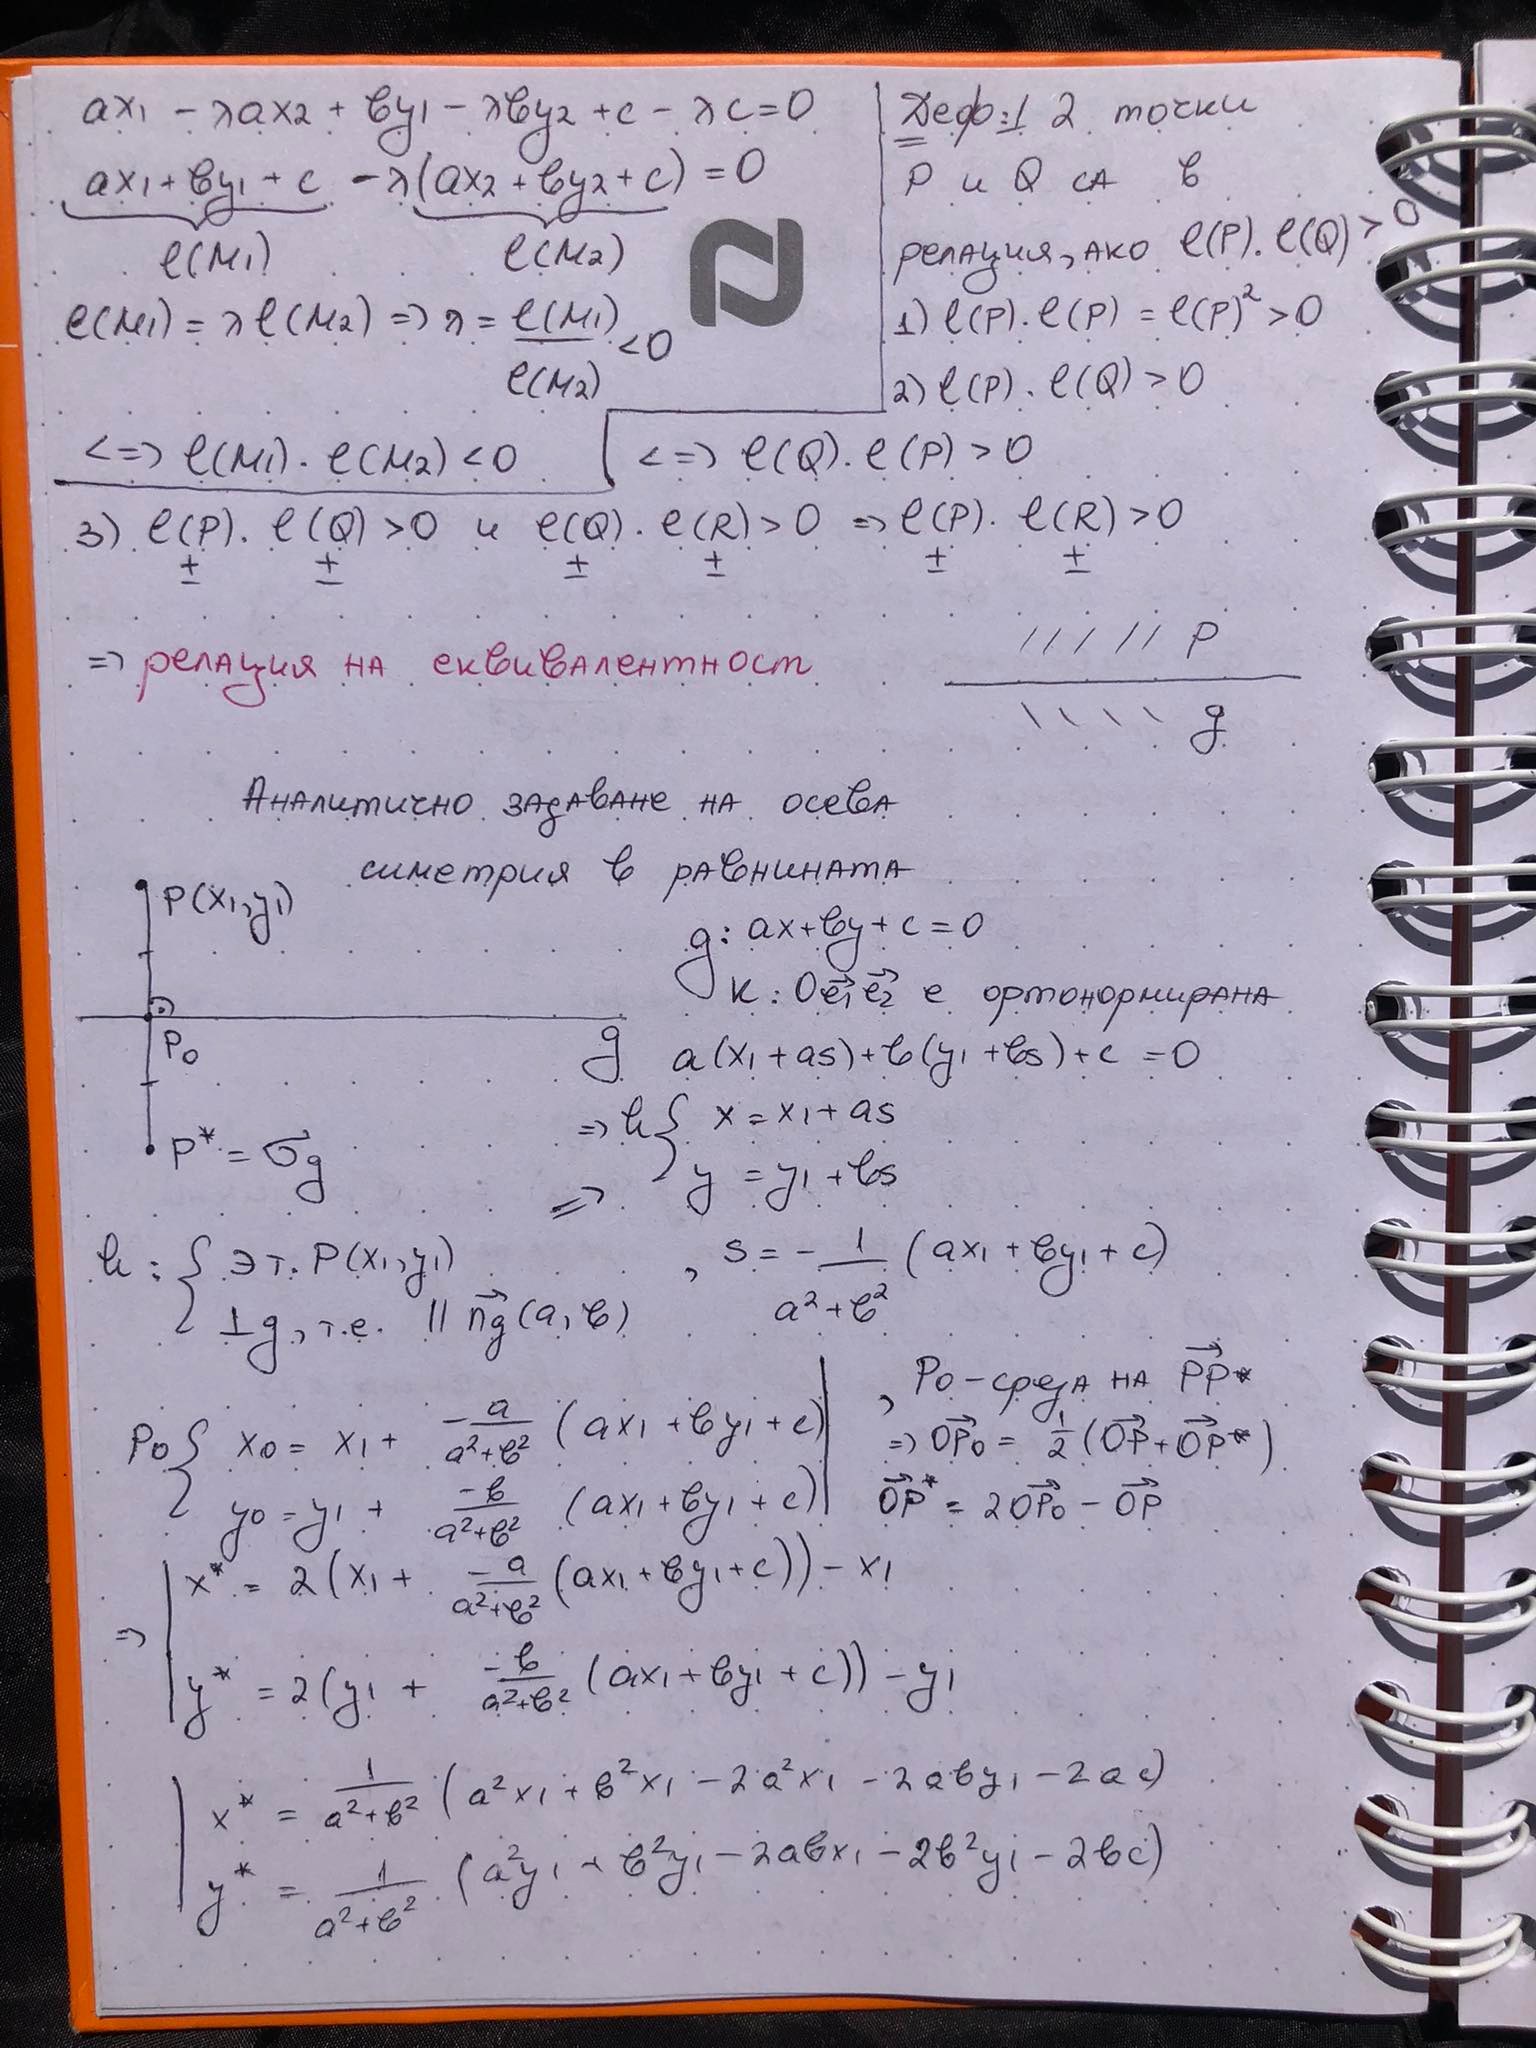 ax₁ - λax₂ + by₁ - λby₂ + c - λc = 0
ax₁ + by₁ + c - λ(ax₂ + by₂ + c) = 0
l(M₁) l(M₂)
l(M₁) = λl(M₂) => λ = l(M₁)/l(M₂) < 0
<=> l(M₁) . l(M₂) < 0
Деф:1 2 точки
P и Q са в
релация, ако l(P). l(Q) > 0
1) l(P). l(P) = l(P)² > 0
2) l(P). l(Q) > 0
<=> l(Q). l(P) > 0
3) l(P). l(Q) > 0 и l(Q). l(R) > 0 => l(P). l(R) > 0
± ± ± ± ± ±
=> релация на еквивалентност
P
g
Аналитично задаване на осева
симетрия в равнината
P(x₁, y₁)
P₀
g
P* = σg
g: ax + by + c = 0
K: Oe₁→e₂→ е ортонормирана
a(x₁ + as) + b(y₁ + bs) + c = 0
=> h { x = x₁ + as
y = y₁ + bs
=>
h: { Э т. P(x₁, y₁)
⊥g, т.е. || n→g(a, b)
, s = - 1/(a² + b²) (ax₁ + by₁ + c)
P₀ { x₀ = x₁ + -a/(a² + b²) (ax₁ + by₁ + c)
y₀ = y₁ + -b/(a² + b²) (ax₁ + by₁ + c)
, P₀ - среда на PP*→
=> OP₀→ = 1/2 (OP→ + OP*→)
OP*→ = 2OP₀→ - OP→
=> | x* = 2(x₁ + -a/(a² + b²) (ax₁ + by₁ + c)) - x₁
y* = 2(y₁ + -b/(a² + b²) (ax₁ + by₁ + c)) - y₁
| x* = 1/(a² + b²) (a²x₁ + b²x₁ - 2a²x₁ - 2aby₁ - 2ac)
y* = 1/(a² + b²) (a²y₁ + b²y₁ - 2abx₁ - 2b²y₁ - 2bc)